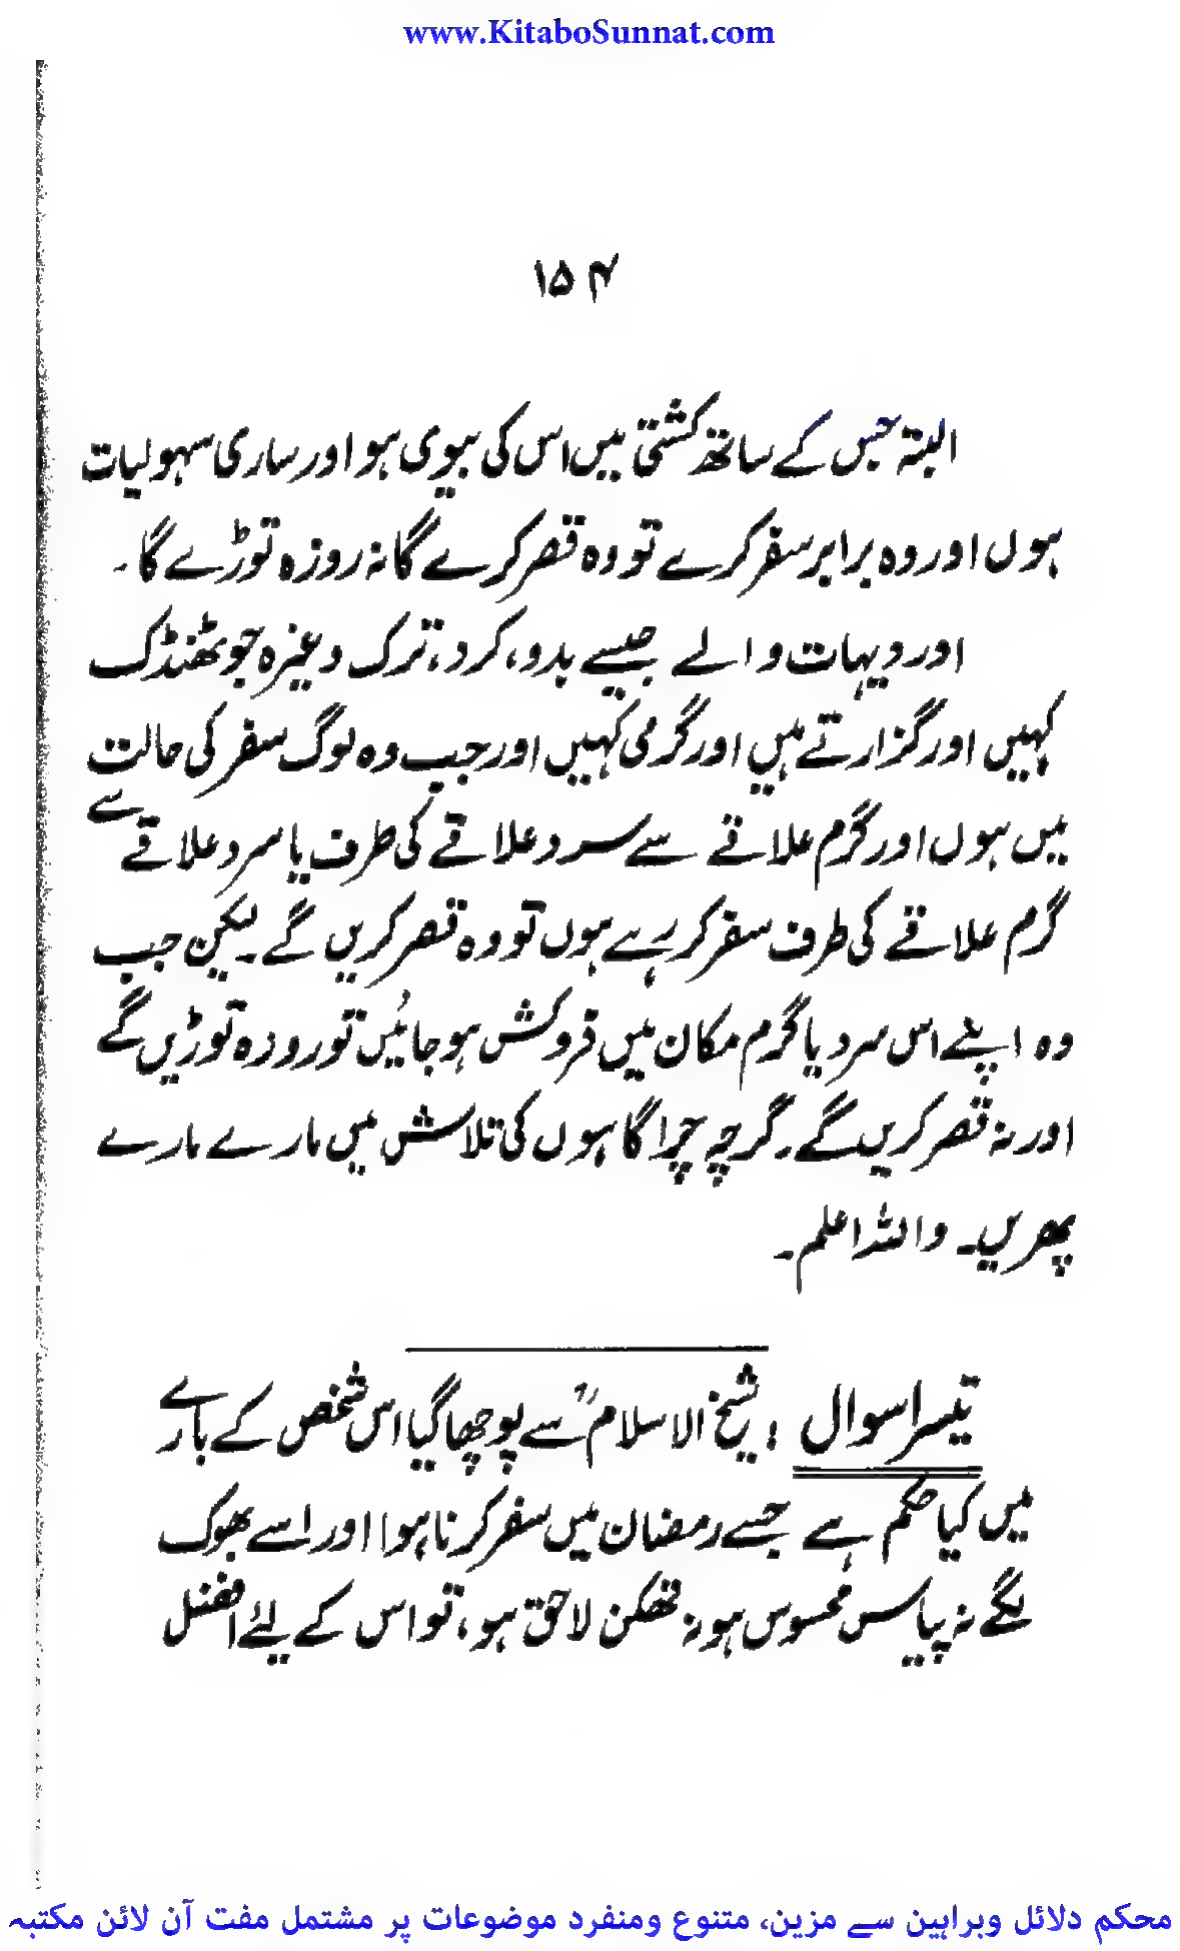 www.KitaboSunnat.com
۱۵۴
البتہ جس کے ساتھ کشتی میں اس کی بیوی ہو اور ساری سہولیات
ہوں اور وہ برابر سفر کرے تو وہ قصر کرے گا نہ روزہ توڑے گا۔
اور دیہات والے جیسے بدو، کرد، ترک وغیرہ جو ٹھنڈک
کہیں اور گزارتے ہیں اور گرمی کہیں اور جب وہ لوگ سفر کی حالت
میں ہوں اور گرم علاقے سے سرد علاقے کی طرف یا سرد علاقے سے
گرم علاقے کی طرف سفر کر رہے ہوں تو وہ قصر کریں گے۔ لیکن جب
وہ اپنے اس سرد یا گرم مکان میں فروکش ہو جائیں تو روزہ توڑیں گے
اور نہ قصر کریں گے۔ گرچہ چراگاہوں کی تلاش میں مارے مارے
پھریں۔ واللہ اعلم۔
تیسرا سوال : شیخ الاسلامؒ سے پوچھا گیا اس شخص کے بارے
میں کیا حکم ہے جسے رمضان میں سفر کرنا ہو اور اسے بھوک
لگے نہ پیاس محسوس ہو نہ تھکن لاحق ہو، تو اس کے لئے افضل
محکم دلائل وبراہین سے مزین، متنوع ومنفرد موضوعات پر مشتمل مفت آن لائن مکتبہ